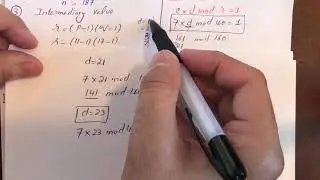 n = 187
③ Intermediary value
r = (P-1)(q-1)
r = (11-1)(17-1)
d = 21
7 × 21 mod 160
141 mod 160
d = 23
7 × 23 mod 16
e × d mod r = 1
7 × d mod 160 = 1
161 mod 160
21